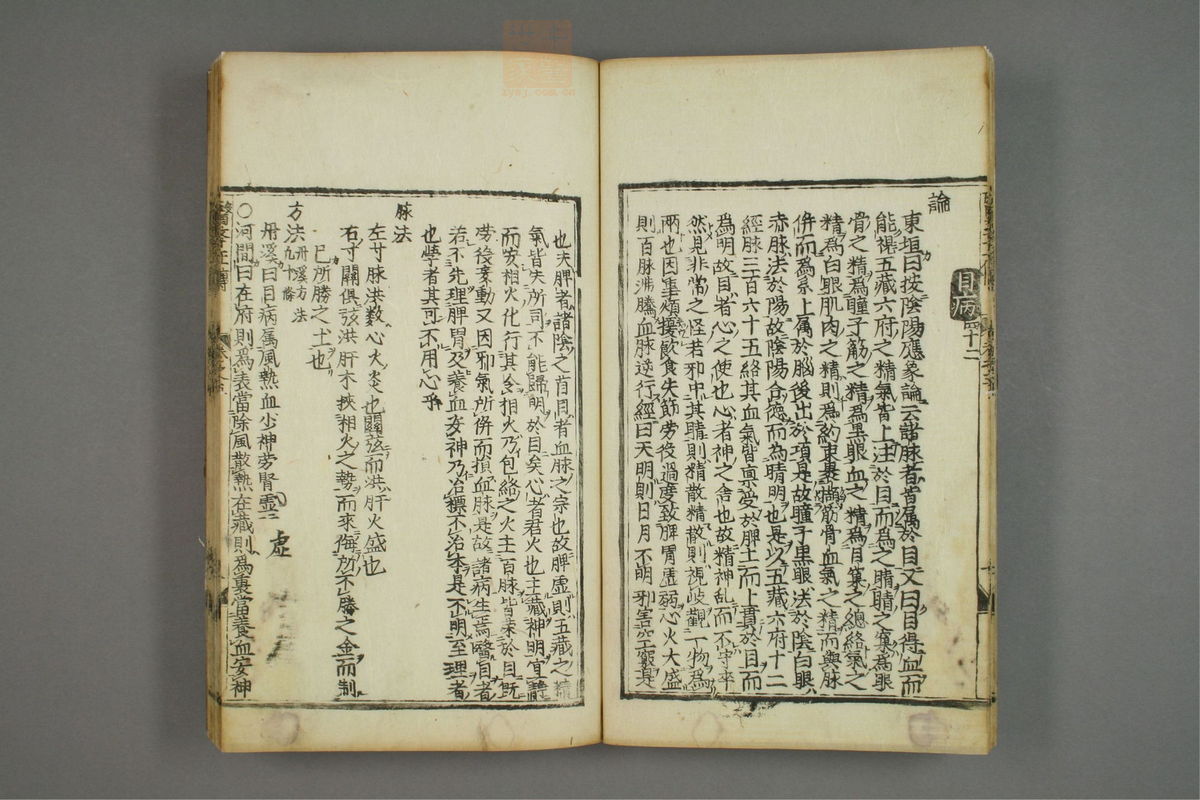 目病 四十二
論
東垣曰按陰陽應象論云諸脉者皆属於目又曰目得血而
能視五藏六府之精氣皆上注於目而為之睛睛之窠為眼
骨之精為瞳子筋之精為黒眼血之精為目窠之總絡氣之
精為白眼肌肉之精則為約束裹擷筋骨血氣之精而與脉
併而為系上属於腦後出於項是故瞳子黒眼法於陰白眼
赤脉法於陽故陰陽合徳而為睛明也是以五藏六府十二
經脉三百六十五絡其血氣皆禀受於脾土而上貫於目而
為明故目者心之使也心者神之舎也故精神乱而不守卒
然見非常之怪若邪中其睛則精散精散則視岐觀一物為
兩也因事煩擾飲食失節劳役過度致脾胃虛弱心火大盛
則百脉沸騰血脉逆行經曰天明則日月不明邪害空竅是
也夫脾者諸陰之首目者血脉之宗也故脾虚則五藏之精
氣皆失所司不能歸明於目矣心者君火也主藏神明宜静
而安相火化行其令相火乃包絡之火主百脉皆榮於目既
劳役妄動又因邪氣所併而損血脉是故諸病生焉醫目者
治不先理脾胃及養血安神乃治標不治本是不明至理者
也學者其可不用心乎
脉法
左寸脉洪数心火炎也關弦而洪肝火盛也
右寸關俱弦洪肝木挾相火之勢而來侮所不勝之金而制
已所勝之土也
方法 丹溪方法 九十條
丹溪曰目病属風熱血少神劳腎虚
虚
○河間曰在府則為表當除風散熱在藏則為裏當養血安神